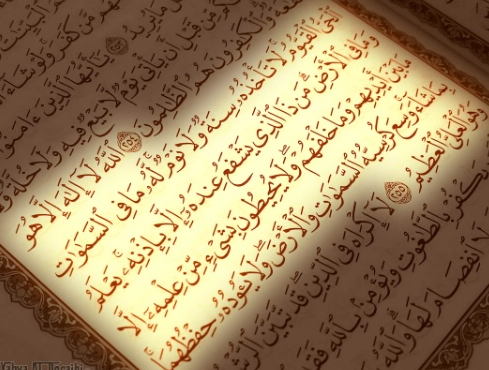 مِّن كَفَرَ وَلَوْ شَاءَ
يُرِيدُ ۝٢٥٣ يَٰٓأَيُّهَا ٱلَّذِينَ ءَامَنُوٓا۟
قَبْلِ أَن يَأْتِىَ يَوْمٌ لَّا بَيْعٌ فِيهِ وَلَا خُلَّةٌ وَلَا
وَٱلْكَٰفِرُونَ هُمُ ٱلظَّٰلِمُونَ ۝٢٥٤ ٱللَّهُ لَآ إِلَٰهَ إِلَّا هُوَ
ٱلْحَىُّ ٱلْقَيُّومُ لَا تَأْخُذُهُۥ سِنَةٌ وَلَا نَوْمٌ لَّهُۥ مَا فِى ٱلسَّمَٰوَٰتِ
وَمَا فِى ٱلْأَرْضِ مَن ذَا ٱلَّذِى يَشْفَعُ عِندَهُۥٓ إِلَّا بِإِذْنِهِۦ يَعْلَمُ
مَا بَيْنَ أَيْدِيهِمْ وَمَا خَلْفَهُمْ وَلَا يُحِيطُونَ بِشَىْءٍ مِّنْ عِلْمِهِۦٓ إِلَّا
بِمَا شَآءَ وَسِعَ كُرْسِيُّهُ ٱلسَّمَٰوَٰتِ وَٱلْأَرْضَ وَلَا يَـُٔودُهُۥ حِفْظُهُمَا
وَهُوَ ٱلْعَلِىُّ ٱلْعَظِيمُ ۝٢٥٥ لَآ إِكْرَاهَ فِى ٱلدِّينِ قَد تَّبَيَّنَ ٱلرُّشْدُ
يَكْفُرْ بِٱلطَّٰغُوتِ وَيُؤْمِنۢ بِٱللَّهِ فَقَدِ
لَا ٱنفِصَامَ لَهَا وَٱللَّهُ